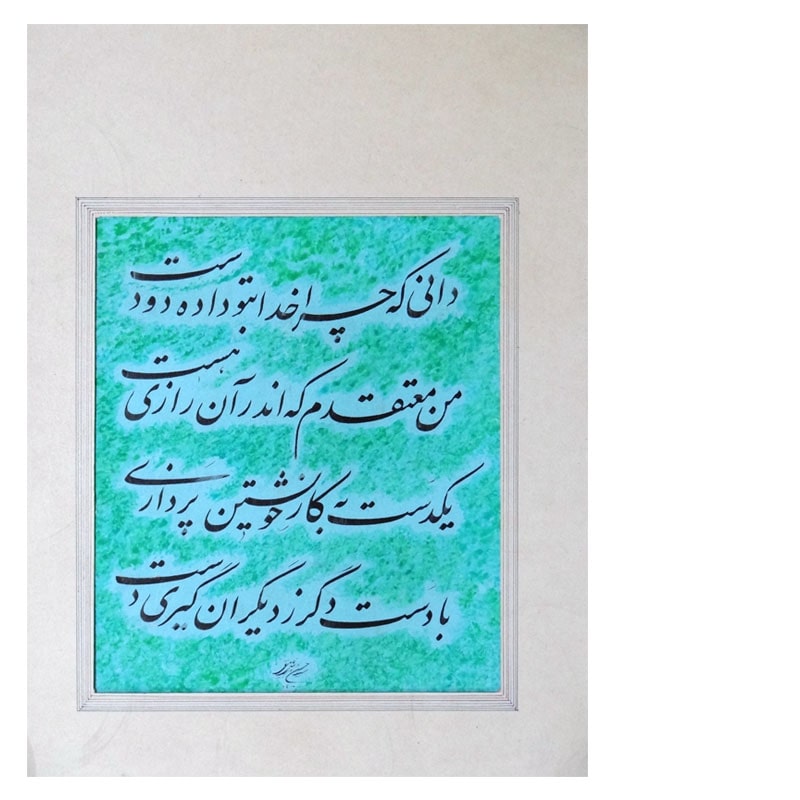 دانی که چرا خدا بتو داده دو دست
من معتقدم که اندر آن رازی هست
یکدست به کار خویشتن پردازی
با دست دگر ز دیگران گیری دست